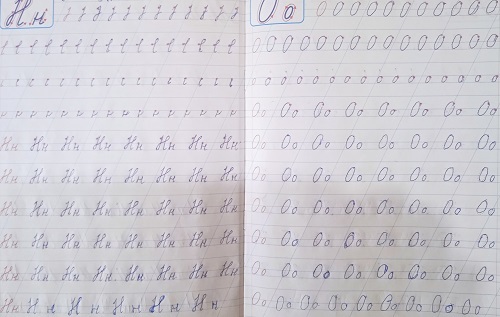 Н н
Нн Нн Нн Нн Нн Нн Нн Нн
Нн Нн Нн Нн Нн Нн Нн Нн
Нн Нн Нн Нн Нн Нн Нн Нн
Нн Нн Нн Нн Нн Нн Нн Нн
Нн Нн Нн Нн Нн Нн Нн Нн
Нн Н н Н н Н н Н н Н н
О о
О О О О О О О О О О О
О О О О О О О О О О О О О О О
о о о о о о о о о о о о о о о о о о
Оо Оо Оо Оо Оо Оо Оо Оо
Оо Оо Оо Оо Оо Оо Оо Оо
Оо Оо Оо Оо Оо Оо Оо Оо
Оо Оо Оо Оо Оо Оо Оо Оо
Оо Оо Оо Оо Оо Оо Оо Оо
Оо Оо Оо Оо Оо Оо Оо Оо
Оо Оо Оо Оо Оо Оо Оо Оо Оо